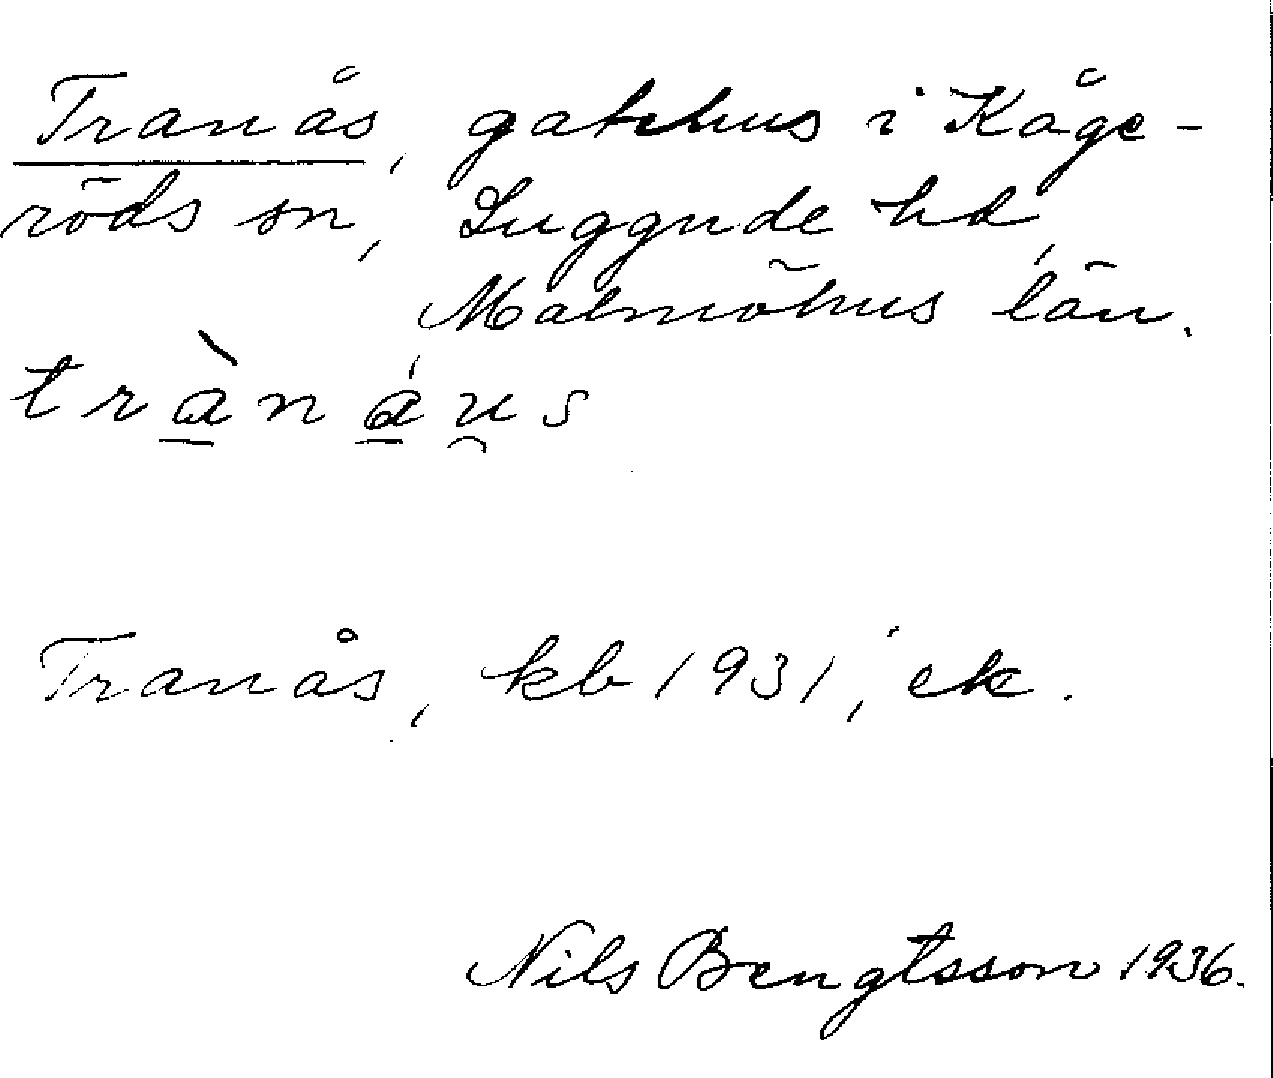 Tranås, gatehus i Kåge-
röds sn, Luggude hd,
Malmöhus län.
trà̱ná̱u̯s
Tranås, kb 1931, ek.
Nils Bengtsson 1936.